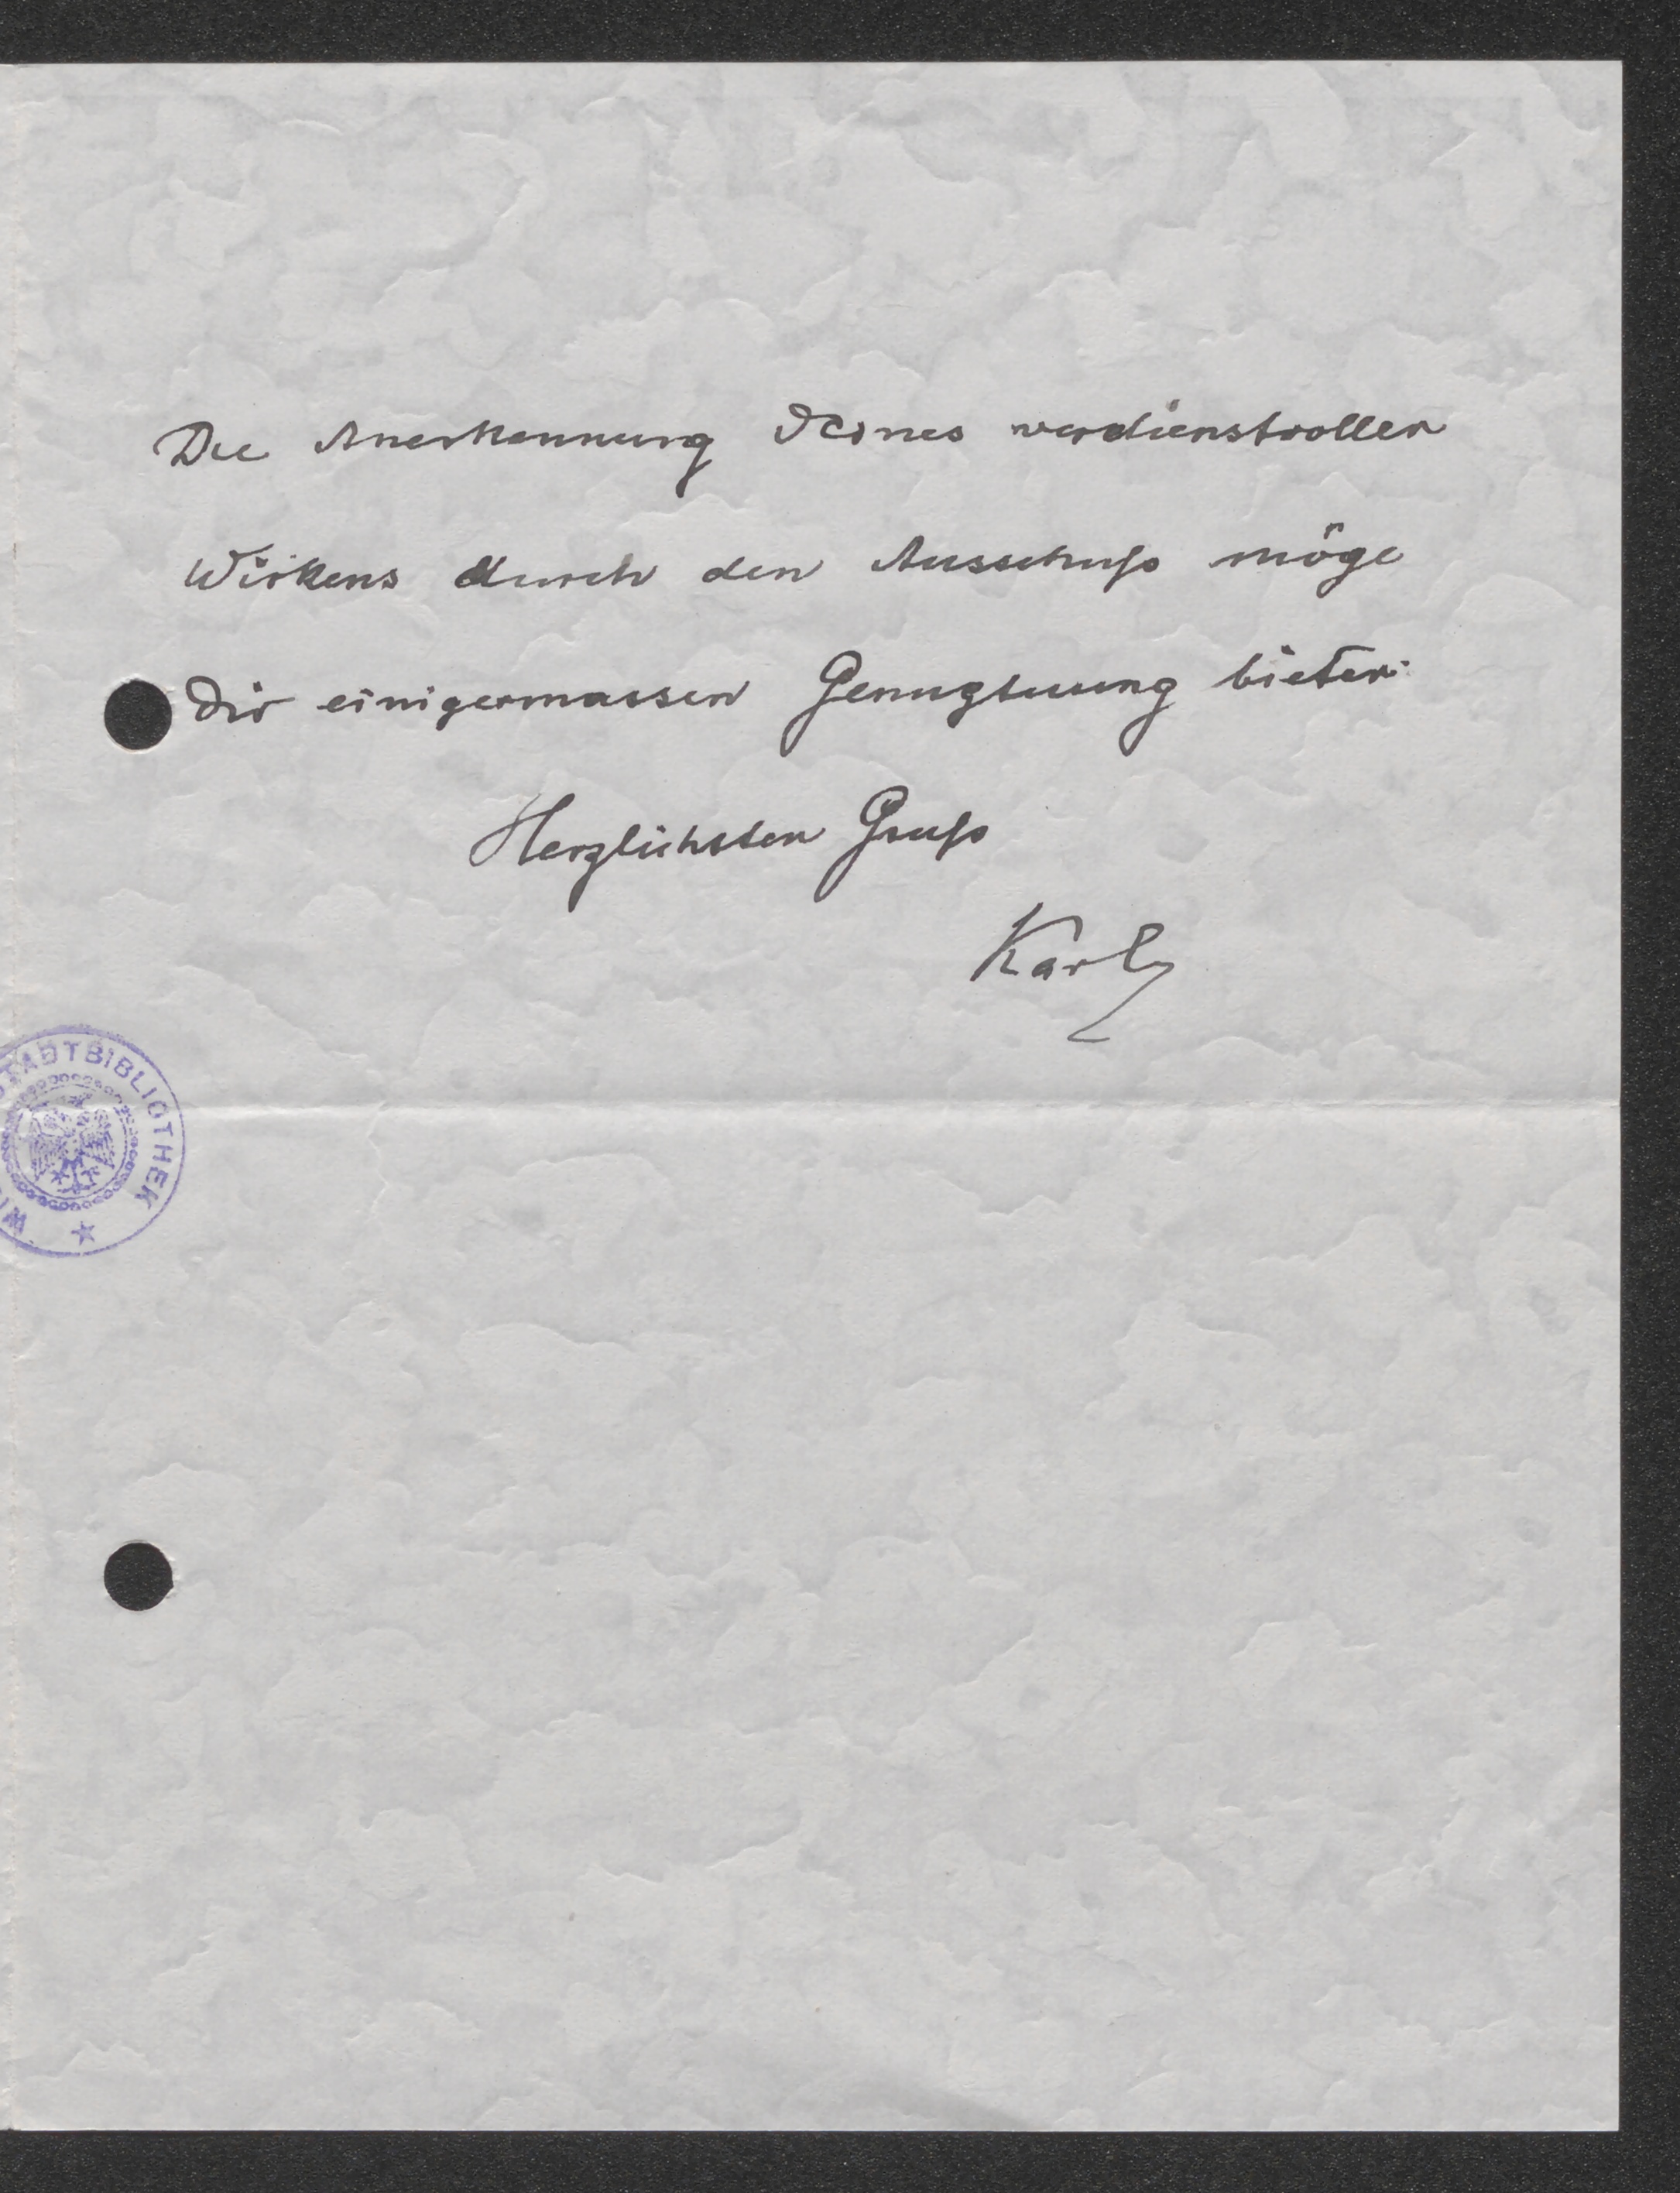 Die Anerkennung Deines verdienstvollen
Wirkens durch den Ausschuß möge
Dir einigermassen Genugtuung bieten.
Herzlichsten Gruß
Karl
STADTBIBLIOTHEK